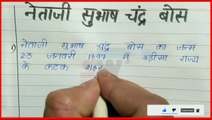 नेताजी सुभाष चंद्र बोस
1) नेताजी सुभाष चंद्र बोस का जन्म
23 जनवरी 1897 में उड़ीसा राज्य
के कटक शहर